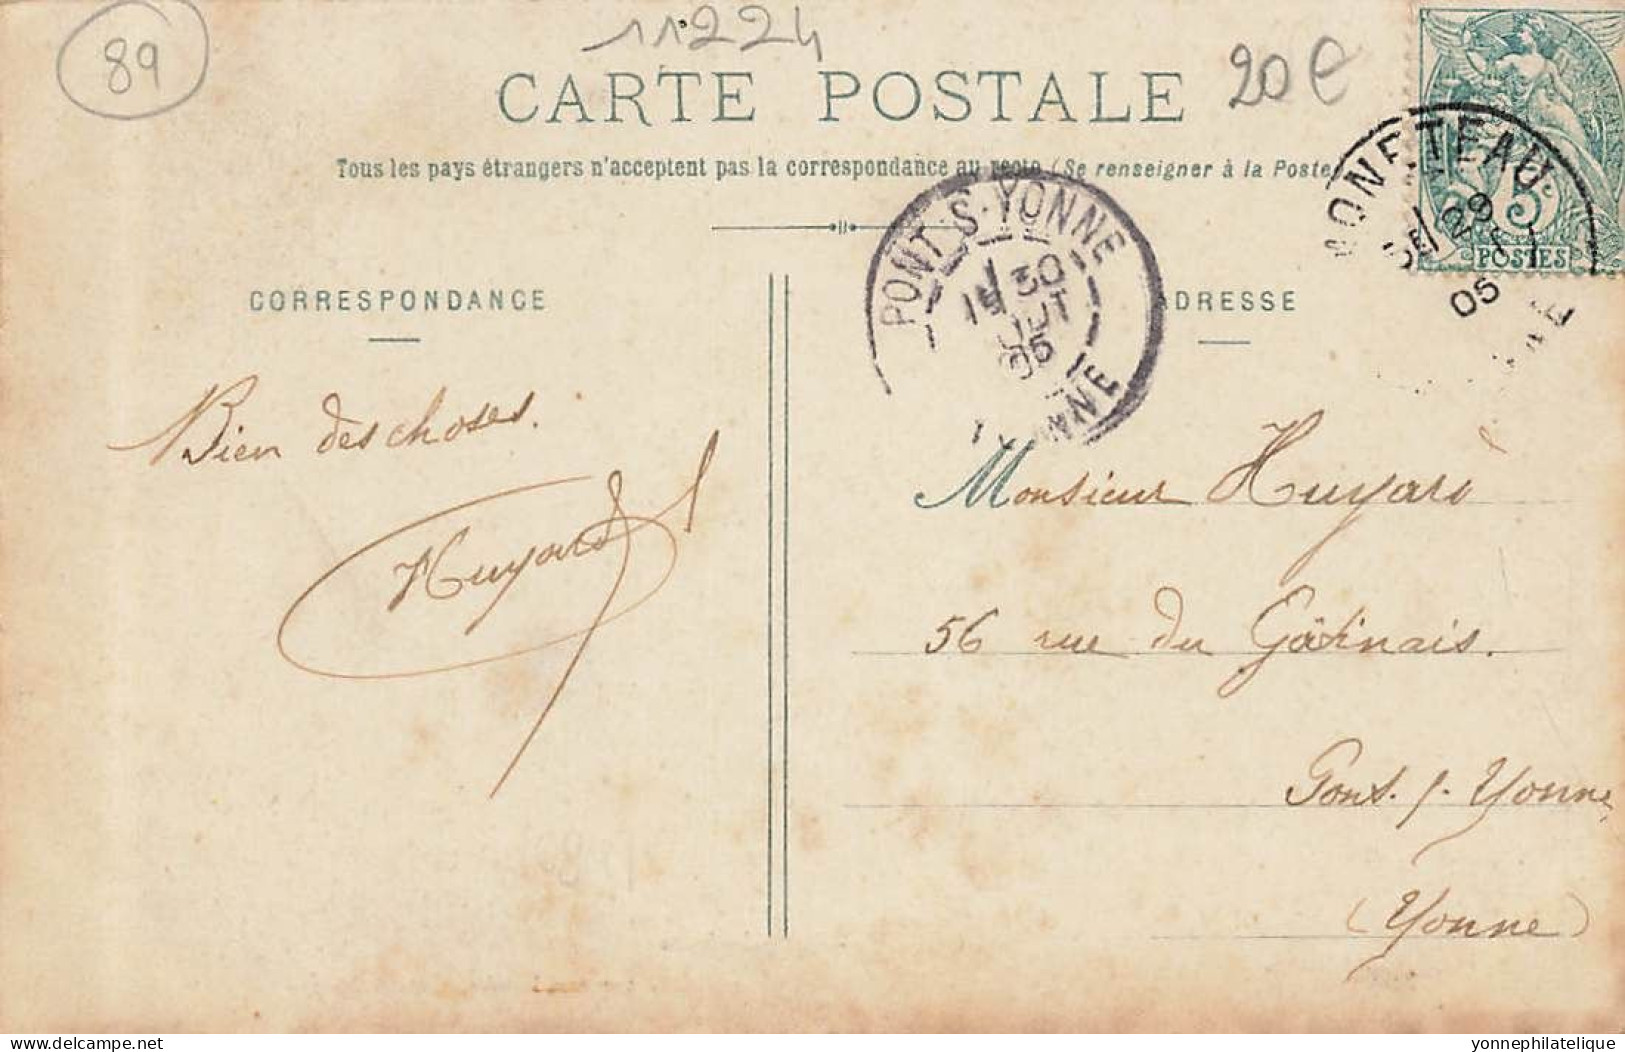 89
11224
20€
CARTE POSTALE
Tous les pays étrangers n'acceptent pas la correspondance au recto (Se renseigner à la Poste)
MONETEAU
05
5c
POSTES
PONT-S-YONNE
30
05
YONNE
CORRESPONDANCE
ADRESSE
Bien des choses.
Huyard
Monsieur Huyard
56 rue du Gâtinais.
Pont. s. Yonne
(Yonne)
delcampe.net
yonnephilatelique